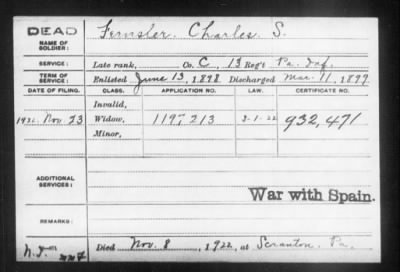 DEAD
NAME OF SOLDIER: Fernsler. Charles S.
SERVICE: Late rank, Co. C, 13 Reg't Pa. Inf.
TERM OF SERVICE: Enlisted June 13, 1898 Discharged Mar. 11, 1899
DATE OF FILING. CLASS. APPLICATION NO. LAW. CERTIFICATE NO.
Invalid,
Nov. 23 Widow, 1197 213 932,471
Minor,
ADDITIONAL SERVICES:
War with Spain.
REMARKS:
Died Nov. 8, 1922, at Scranton, Pa.